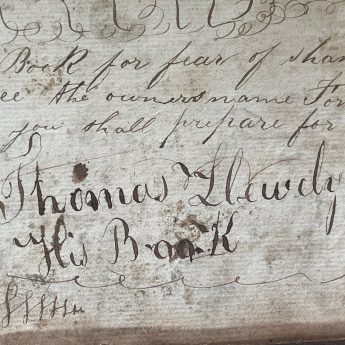 Book for fear of sham
ee the owners name For
you shall prepare for
Thomas Llewely
His Book